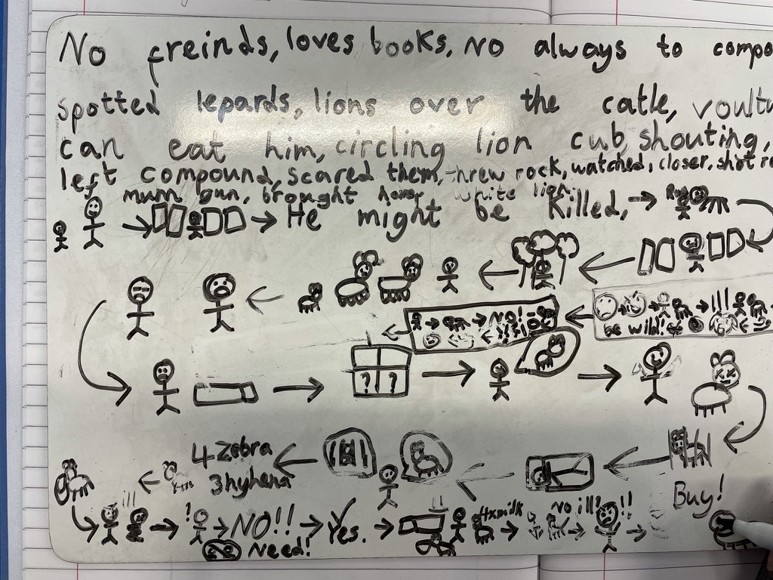 No freinds, loves books, No always to compo
spotted lepards, lions over the catle, voultu
can eat him, circling lion cub, shouting,
left compound, scared them, threw rock, watched, closer, shot re
mum gun, brought home, white lion
He might be killed,
NO!
be wild!
!!!
? ?
4 zebra
3 hyhena
Buy!
!!!
? NO!! Yes. !! 4xmilk No ill! !!
Need!